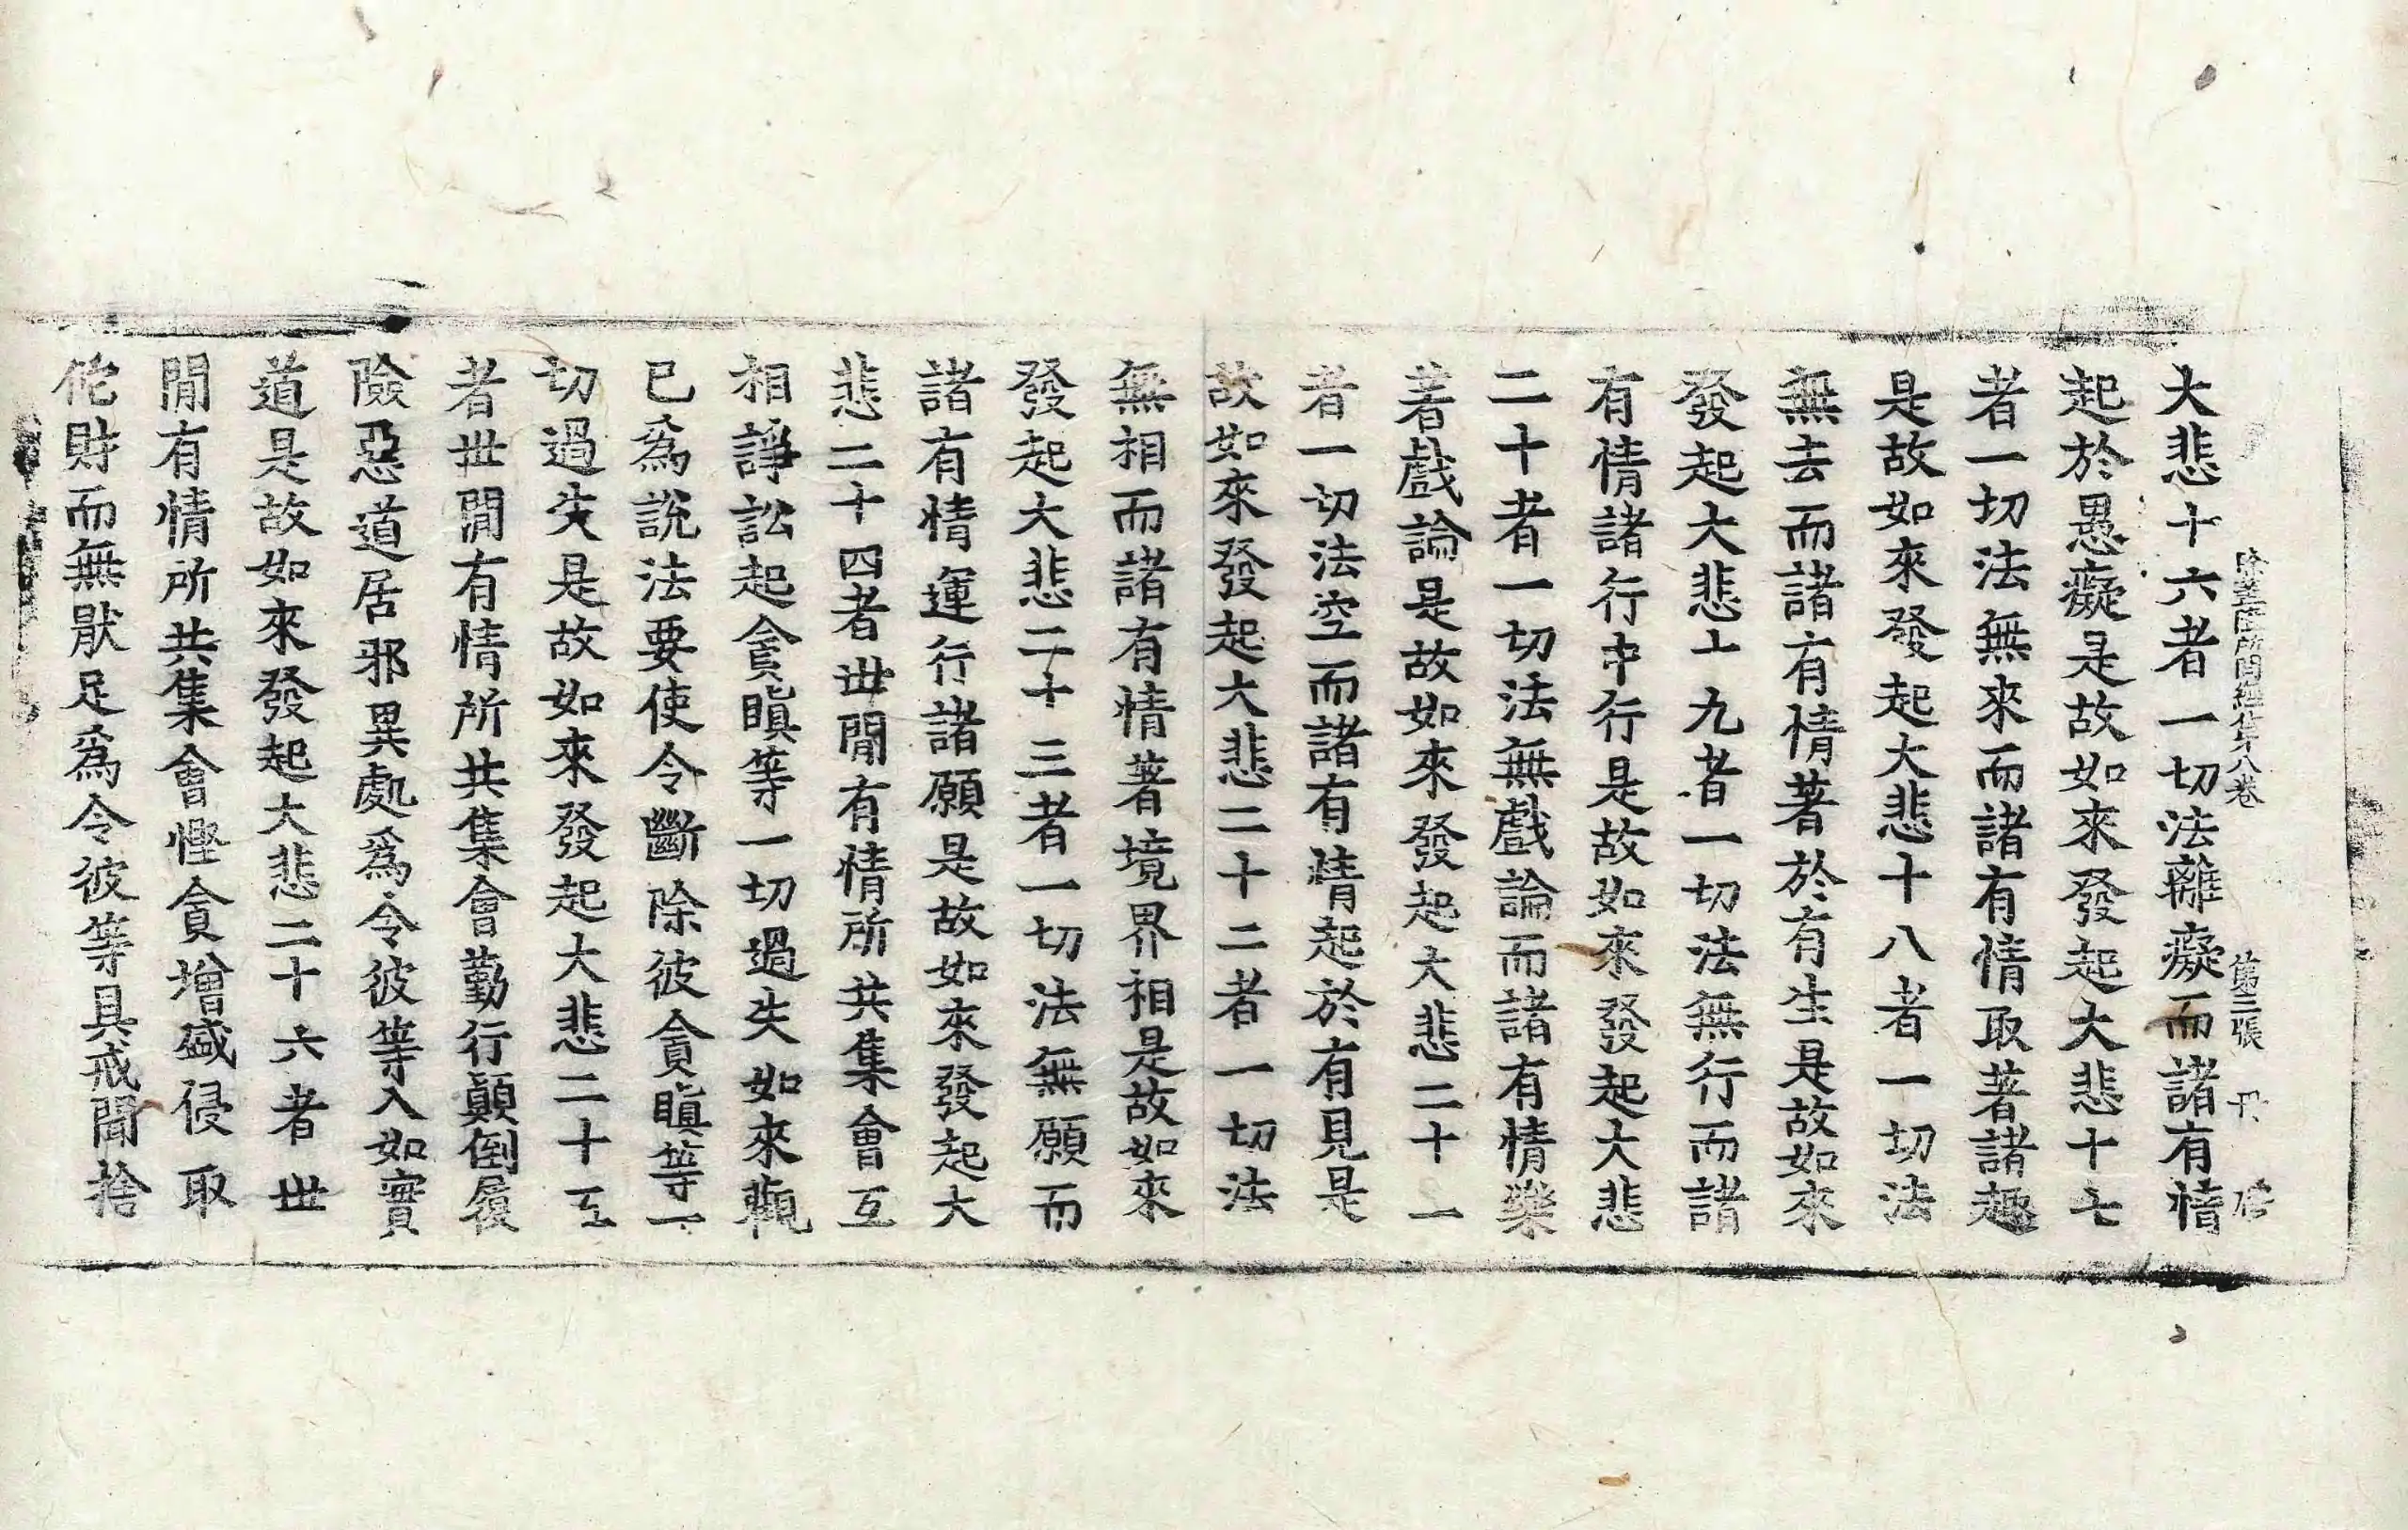 大悲十六者一切法離癡而諸有情
起於愚癡是故如來發起大悲十七
者一切法無來而諸有情取著諸趣
是故如來發起大悲十八者一切法
無去而諸有情著於有生是故如來
發起大悲十九者一切法無行而諸
有情諸行中行是故如來發起大悲
二十者一切法無戲論而諸有情樂
著戲論是故如來發起大悲二十一
者一切法空而諸有情起於有見是
故如來發起大悲二十二者一切法
無相而諸有情著境界相是故如來
發起大悲二十三者一切法無願而
諸有情運行諸願是故如來發起大
悲二十四者世閒有情所共集會互
相諍訟起貪瞋等一切過失如來觀
已爲說法要使令斷除彼貪瞋等一
切過失是故如來發起大悲二十五
者世閒有情所共集會勤行顚倒履
險惡道居邪異處爲令彼等入如實
道是故如來發起大悲二十六者世
閒有情所共集會慳貪增盛侵取
佗財而無厭足爲令彼等具戒聞捨
所問經第八卷 第三張